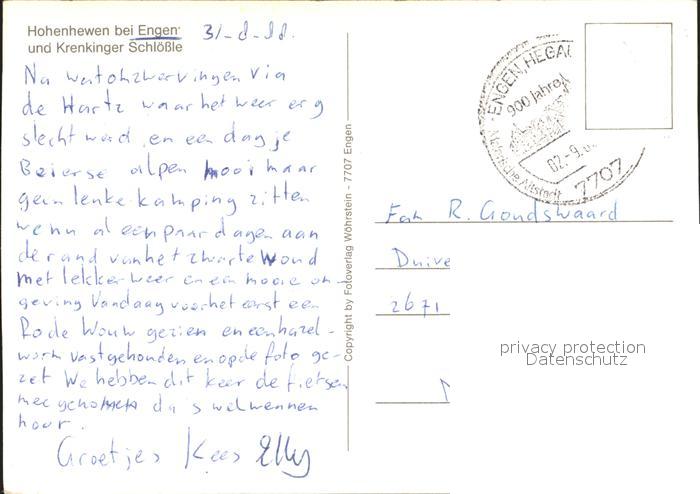 Hohenhewen bei Engen
und Krenkinger Schlößle
31-8-88.
Na watohzwervingen via
de Hartz waarhetweer erg
slecht werd en een dagje
Beierse alpen mooi maar
geen lenke kamping zitten
wenu al eenpaardagen aan
de rand vanhetzwartewoud
met lekkerweer en een mooie om-
geving Vandaag voorhet eerst een
Rode Wouw gezien en eenhazel-
worm vastgehouden en op de foto ge-
zet We hebben dit keer de fietsen
mee genomen da's welwennen
hoor.
Groetjes Kees Elly
Copyright by Fotoverlag Wöhrstein - 7707 Engen
ENGEN, HEGAU
900 Jahre
Altstadt
02.-9.
7707
Fam R. Gondswaard
Duive
2671
privacy protection
Datenschutz